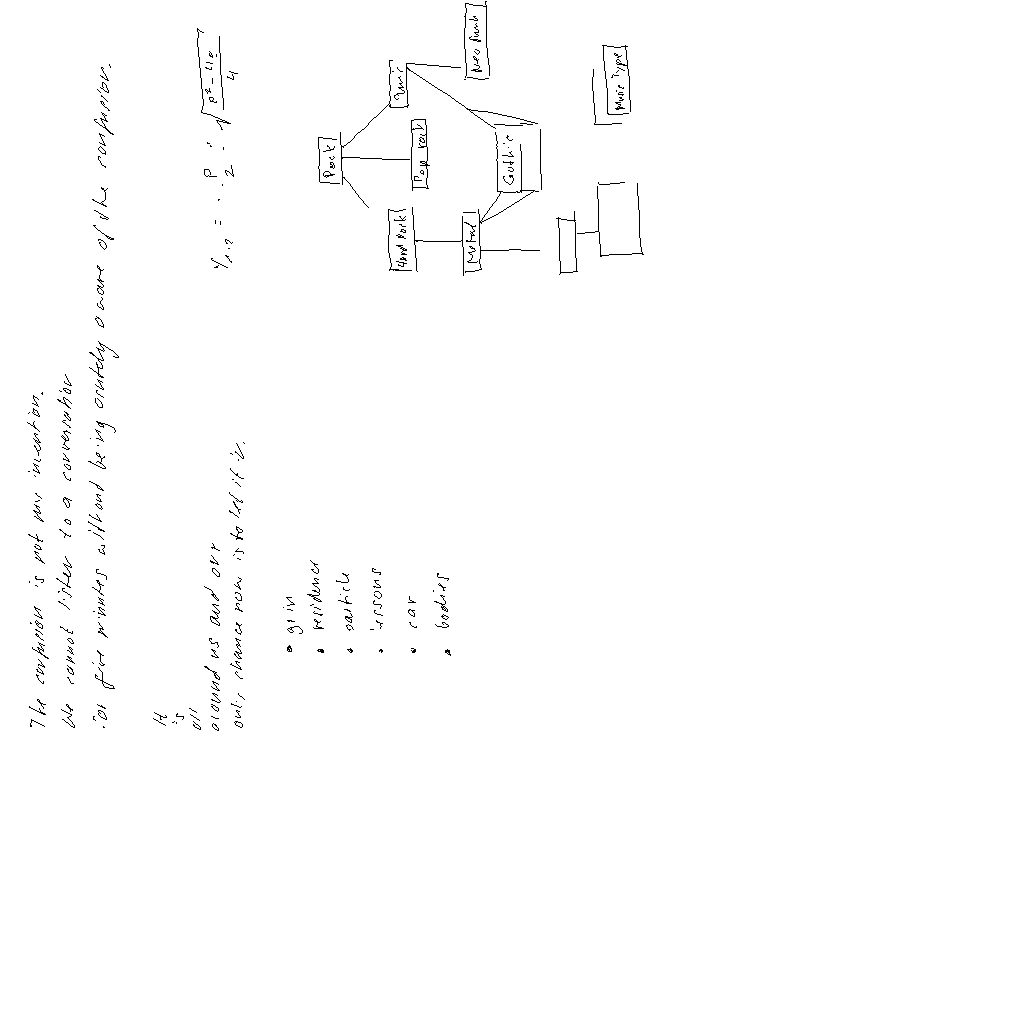 The confusion is not my invention.
We cannot listen to a conversation
for five minutes without being acutely aware of the confusion.
It
is
all
around us and our
only chance now is to let it in.
• gain
• residence
• particle
• persons
• car
• bodies
Rock
Hard Rock
Pop rock
Punk
Metal
Neo Punk
Gothic
Music Type